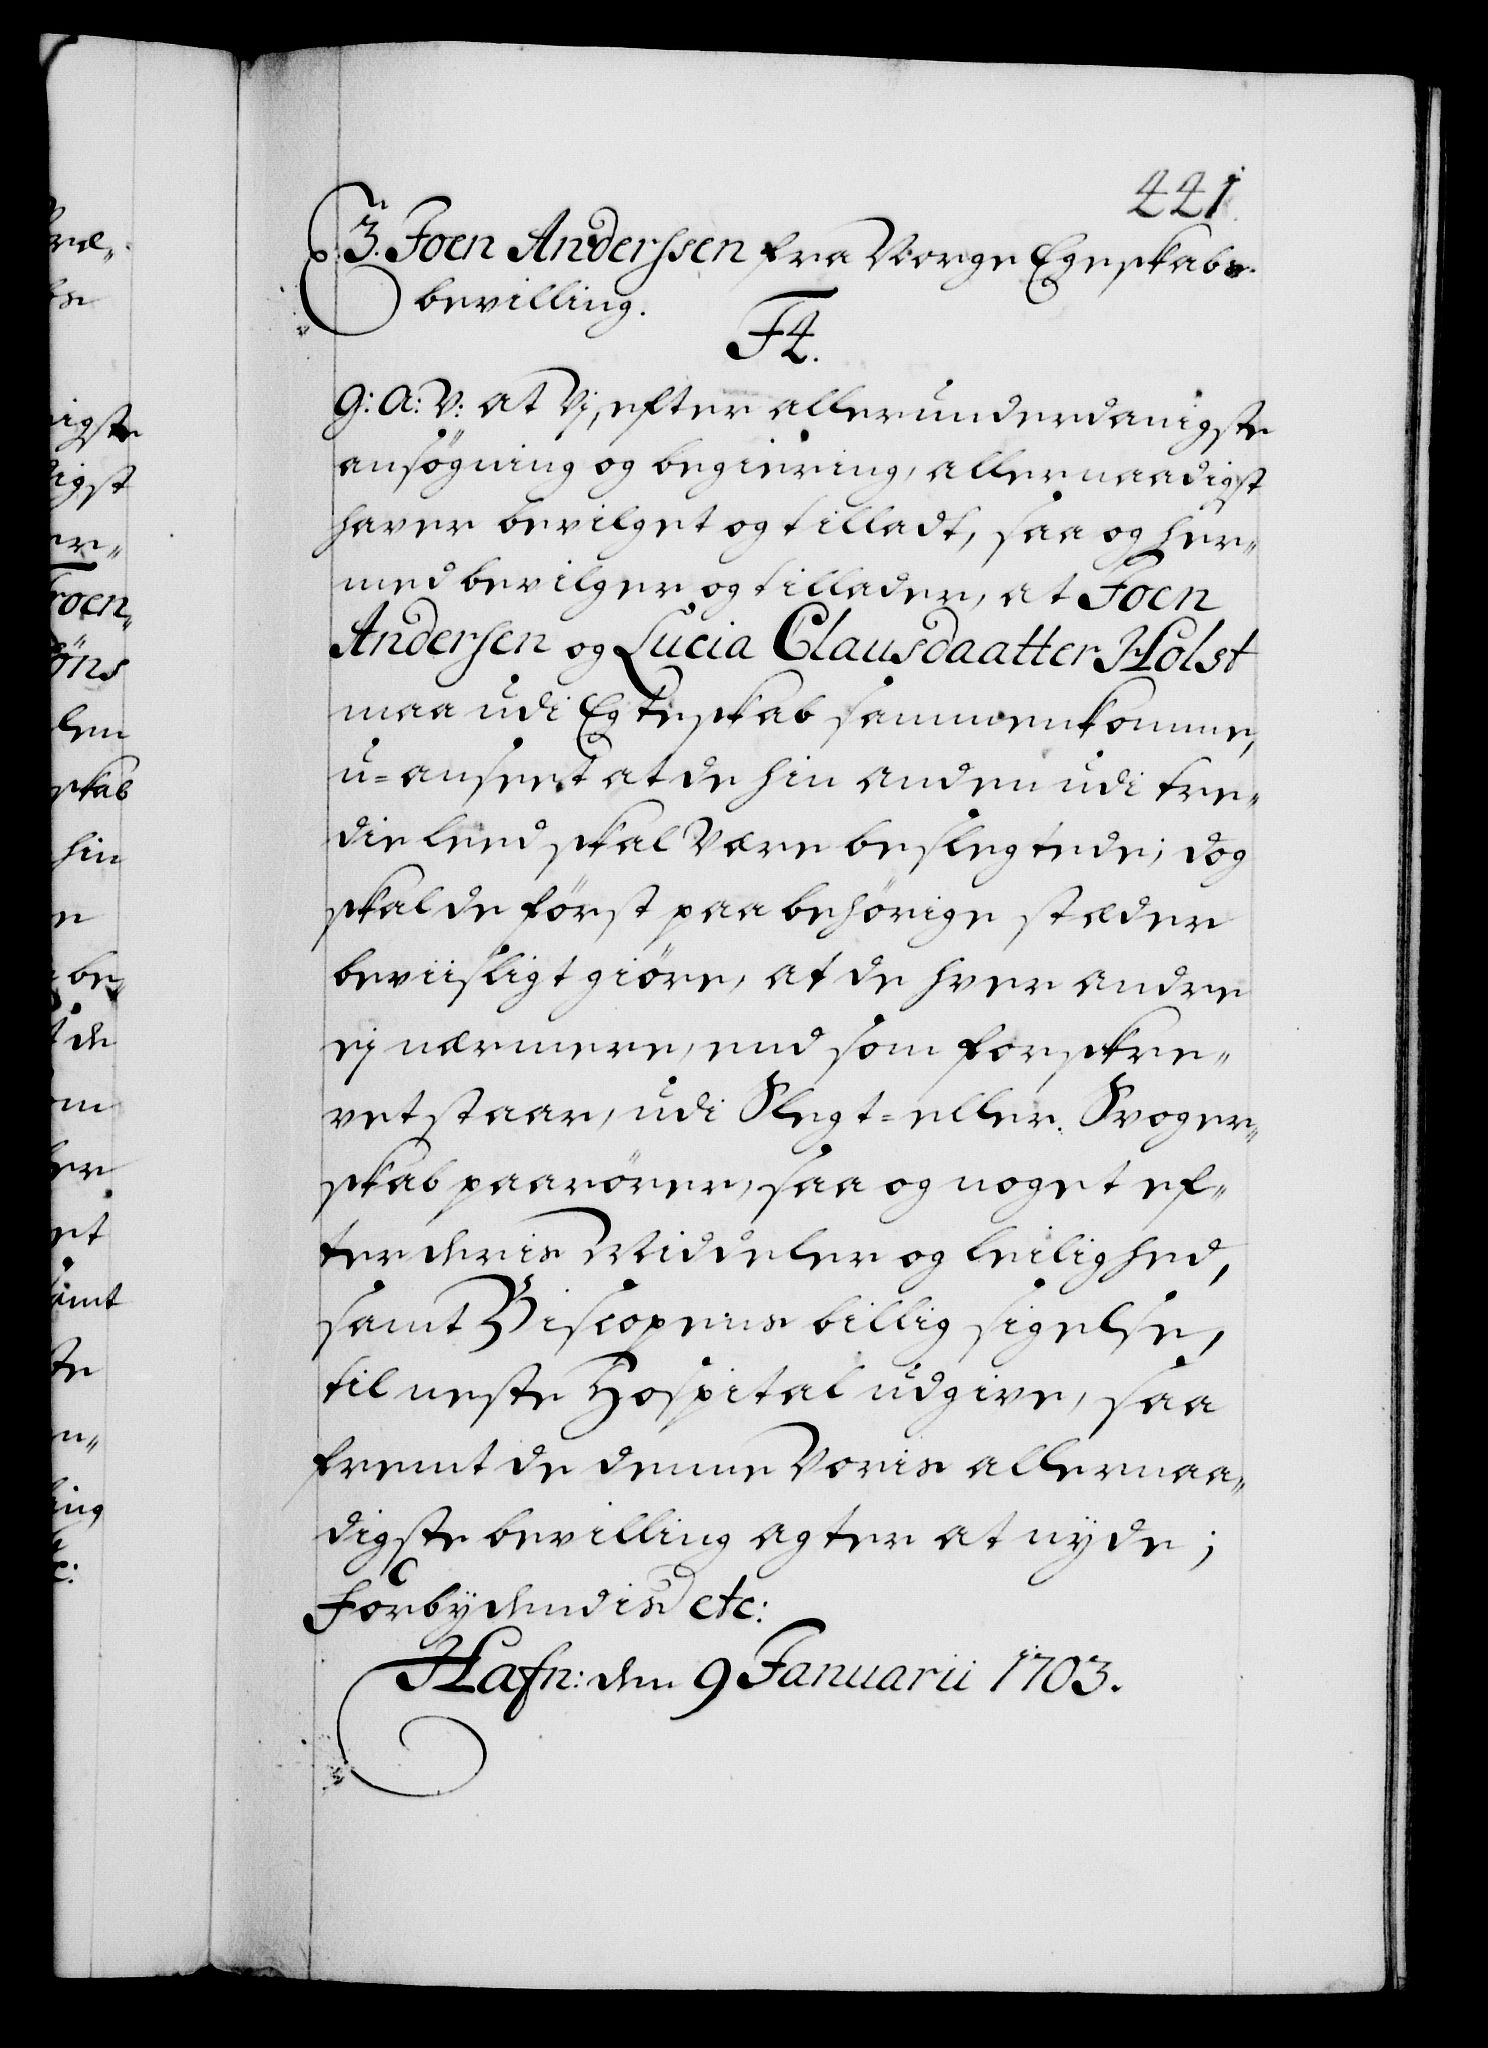 441.
3. Joen Anderssen fra Norge Egeskabs-
bevilling.
F4.
G: A: V: at Vj, efter allerunderdanigste
ansögning og begiering, allernaadigst
haver bevilget og tilladt, saa og her„
med bevilger og tillader, at Joen
Andersen og Lucia Clausdaatter Holst
maa udi Egteskab sammenkomme,
u=anseet at de hin anden udi tre„
die leed skal være beslegtede; dog
skal de först paa behörige stæder
beviisligt giöre, at de hver andre
ej nærmere, end som forskre„
vet staar, udi Slegt= eller Svoger„
skab paarörer, saa og noget ef„
ter deris Middeler og leilighed,
samt Biscopens billig sigelse,
til neste Hospital udgive, saa
fremt de denne Voris allernaa„
digste bevilling agter at nyde;
Forbydendis etc:
Hafn: den 9 Januarii 1703.